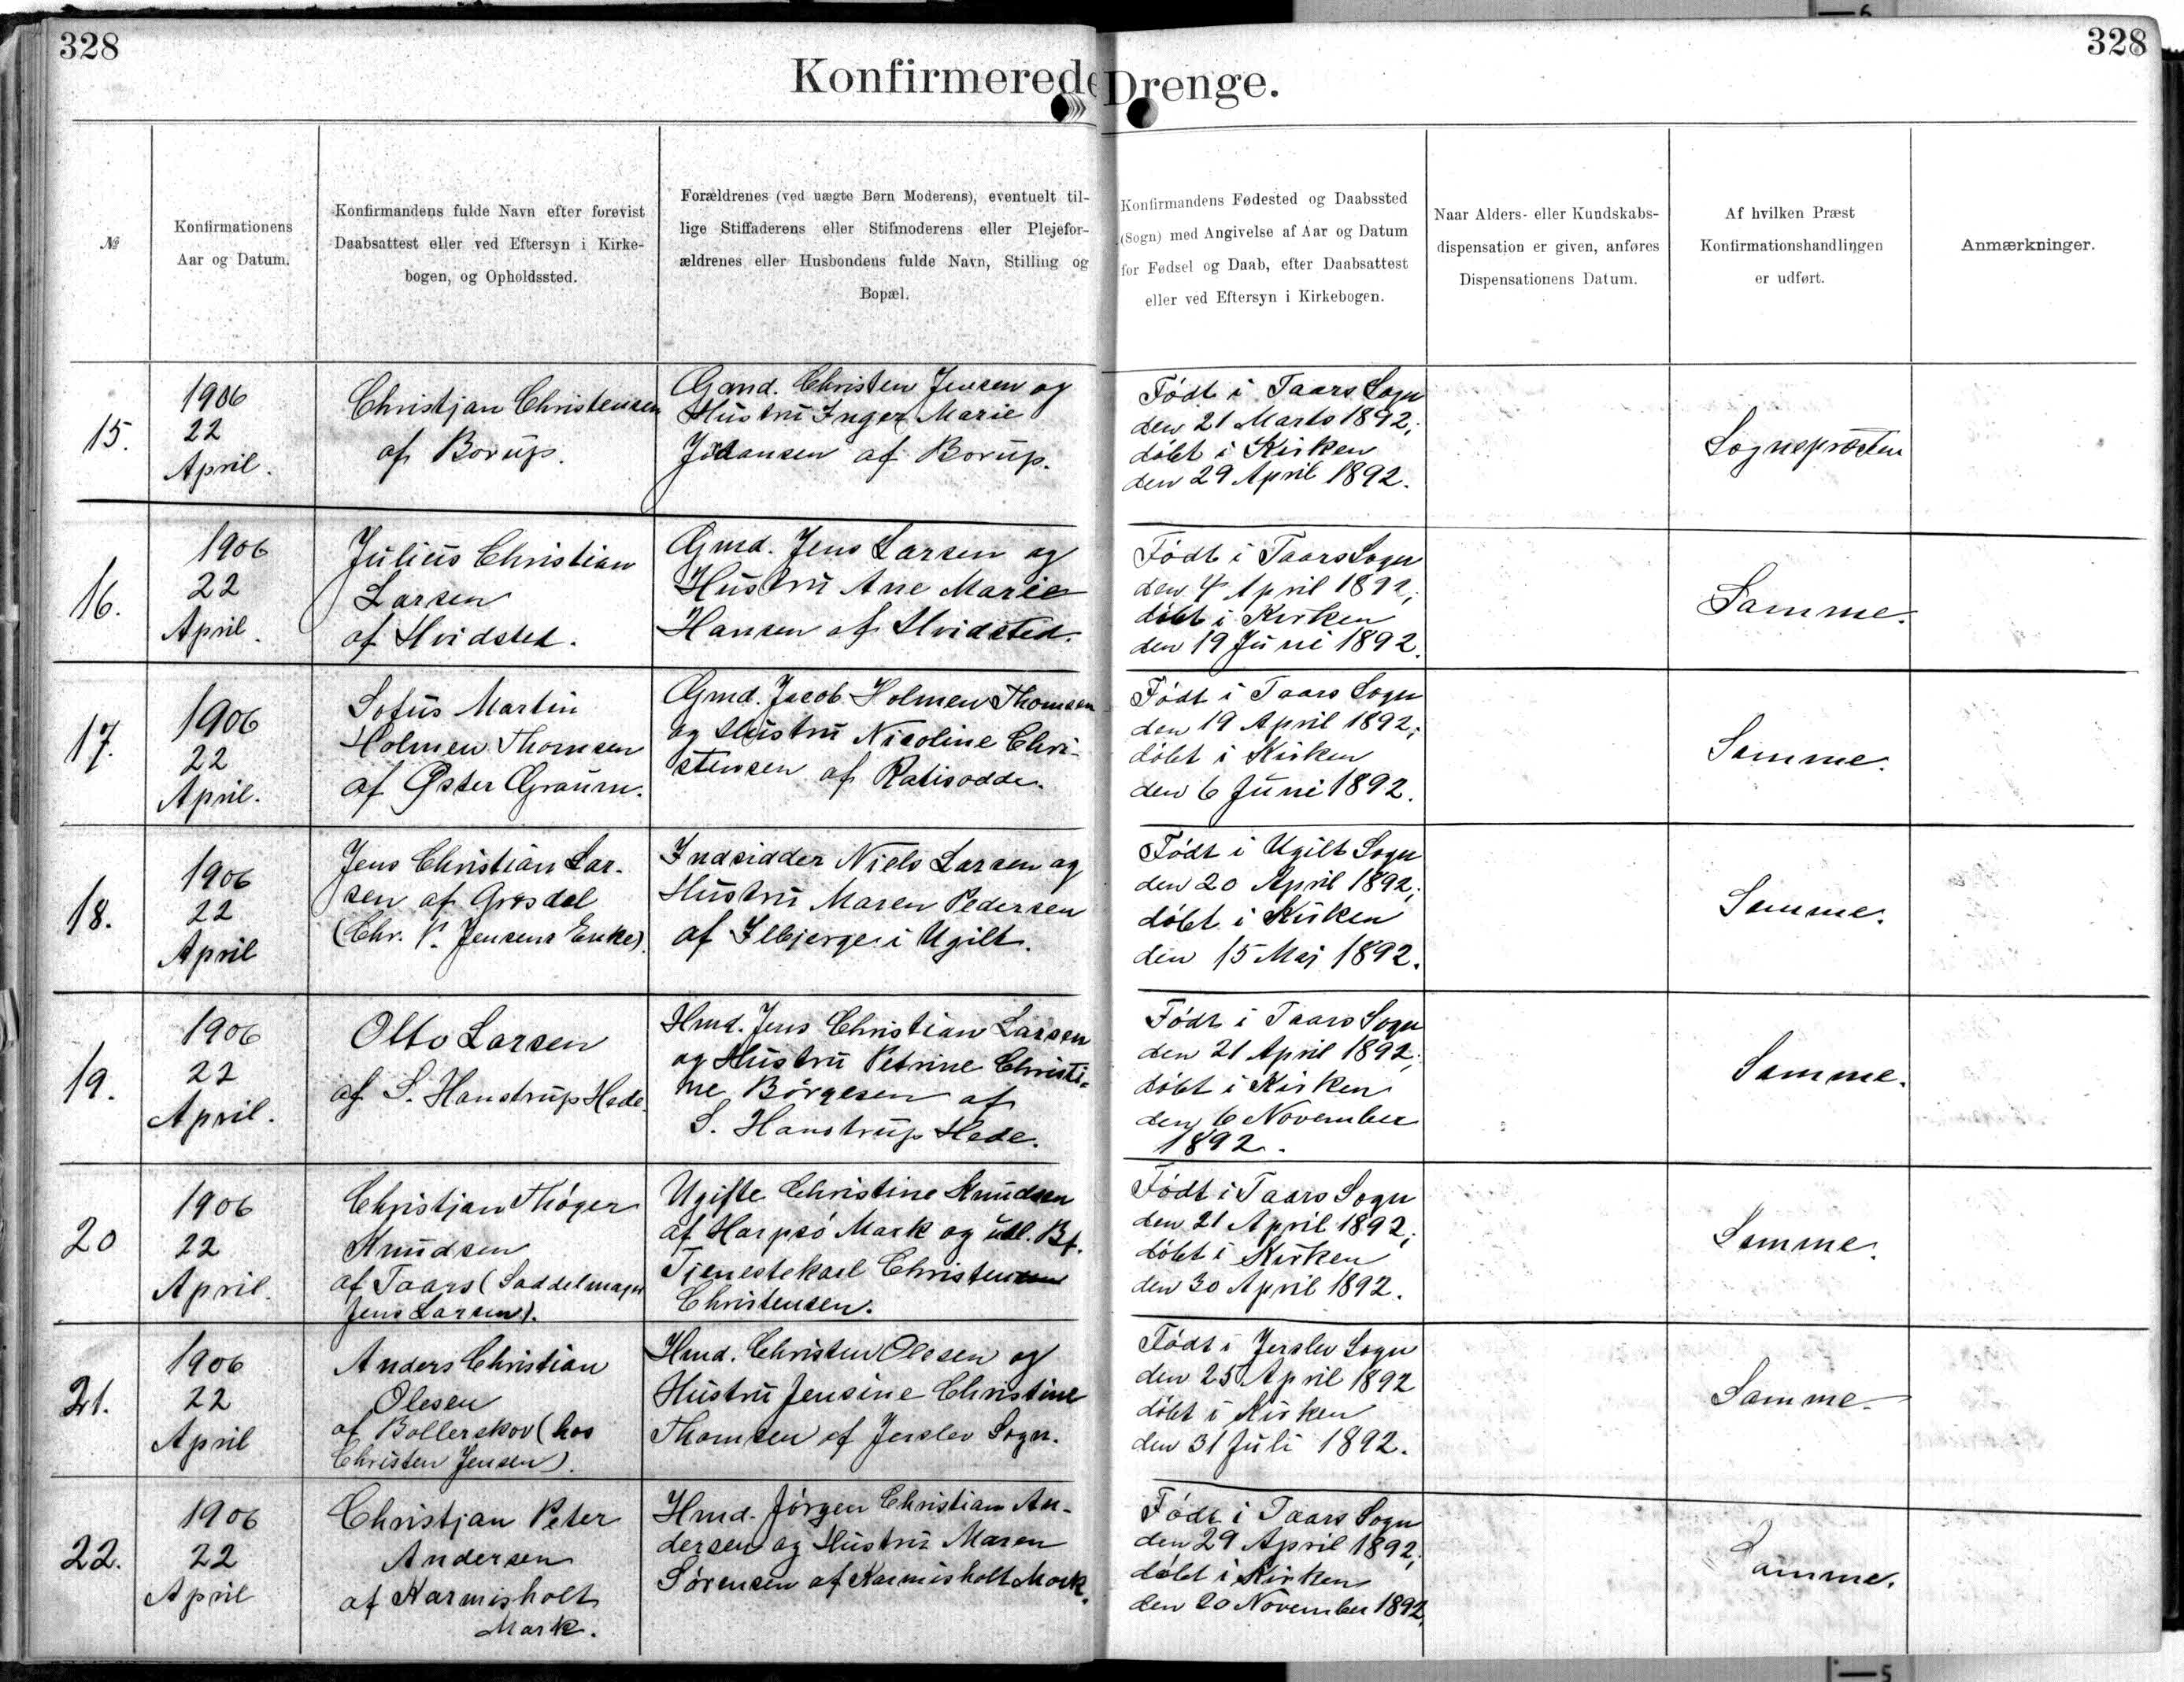 328
328
Konfirmerede Drenge.
№
Konfirmationens
Aar og Datum.
Konfirmandens fulde Navn efter forevist
Daabsattest eller ved Eftersyn i Kirke-
bogen, og Opholdssted.
Forældrenes (ved uægte Børn Moderens), eventuelt til-
lige Stiffaderens eller Stifmoderens eller Plejefor-
ældrenes eller Husbondens fulde Navn, Stilling og
Bopæl.
Konfirmandens Fødested og Daabssted
(Sogn) med Angivelse af Aar og Datum
for Fødsel og Daab, efter Daabsattest
eller ved Eftersyn i Kirkebogen.
Naar Alders- eller Kundskabs-
dispensation er given, anføres
Dispensationens Datum.
Af hvilken Præst
Konfirmationshandlingen
er udført.
Anmærkninger.
15.
1906
22
April.
Christjan Christensen
af Borup.
Gmd. Christen Jensen og
Hustru Inger Marie
Johansen af Borup.
Født i Taars Sogn
den 21 Marts 1892;
døbt i Kirken
den 29 April 1892.
Sognepræsten
16.
1906
22
April.
Julius Christian
Larsen
af Hvidsted.
Gmd. Jens Larsen og
Hustru Ane Marie
Hansen af Hvidsted.
Født i Taars Sogn
den 4 April 1892;
døbt i Kirken
den 19 Juni 1892.
Samme.
17.
1906
22
April.
Sofus Martin
Holmen Thomsen
af Øster Graum.
Gmd. Jacob Holmen Thomsen
og Hustru Nicoline Chri-
stensen af
Født i Taars Sogn
den 19 April 1892;
døbt i Kirken
den 6 Juni 1892.
Samme.
18.
1906
22
April
Jens Christian Lar-
sen af Grøsdal
(Chr. P. Jensens Enke).
Indsidder Niels Larsen og
Hustru Maren Pedersen
af Ilbjerge i Ugilt.
Født i Ugilt Sogn
den 20 April 1892;
døbt i Kirken
den 15 Maj 1892.
Samme.
19.
1906
22
April.
Otto Larsen
af S. Hanstrup Hede.
Hmd. Jens Christian Larsen
og Hustru Petrine Christi-
ne Børgesen af
S. Hanstrup Hede.
Født i Taars Sogn
den 21 April 1892;
døbt i Kirken
den 6 November
1892.
Samme.
20
1906
22
April.
Christjan Thøger
Knudsen
af Taars (Saddelmager
Jens Larsen).
Ugifte Christine Knudsen
af Harpsø Mark og udl. Bf.
Tjenestekarl Christen
Christensen.
Født i Taars Sogn
den 21 April 1892;
døbt i Kirken
den 30 April 1892.
Samme.
21.
1906
22
April
Anders Christian
Olesen
af Bollerskov (hos
Christen Jensen).
Hmd. Christen Olesen og
Hustru Jensine Christine
Thomsen af Jerslev Sogn.
Født i Jerslev Sogn
den 25 April 1892
døbt i Kirken
den 31 Juli 1892.
Samme.
22.
1906
22
April
Christjan Peter
Andersen
af Karmisholt
Mark.
Hmd. Jørgen Christian An-
dersen og Hustru Maren
Sørensen af Karmisholt Mark.
Født i Taars Sogn
den 29 April 1892;
døbt i Kirken
den 20 November 1892.
Samme.